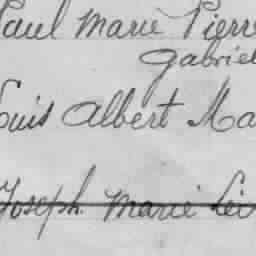 Paul Marie Pierre
Gabriel
Louis Albert Ma
Joseph Marie